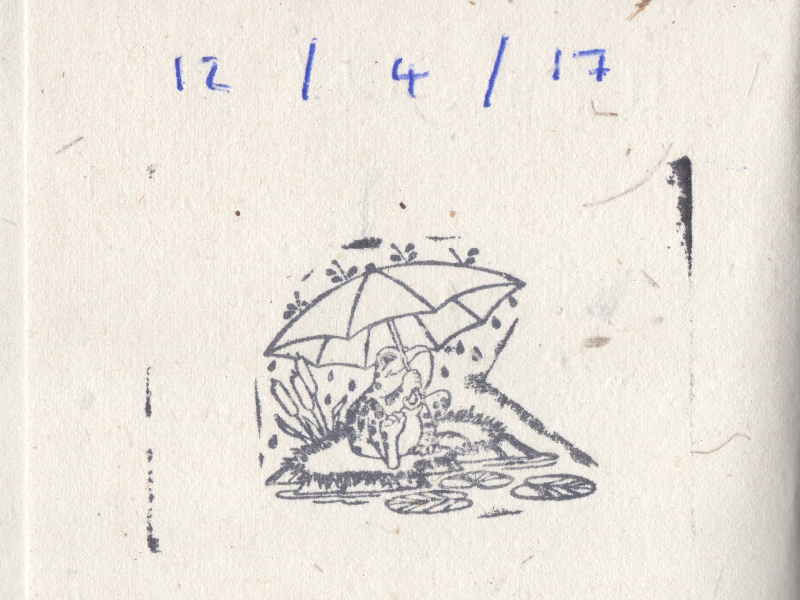 12 / 4 / 17